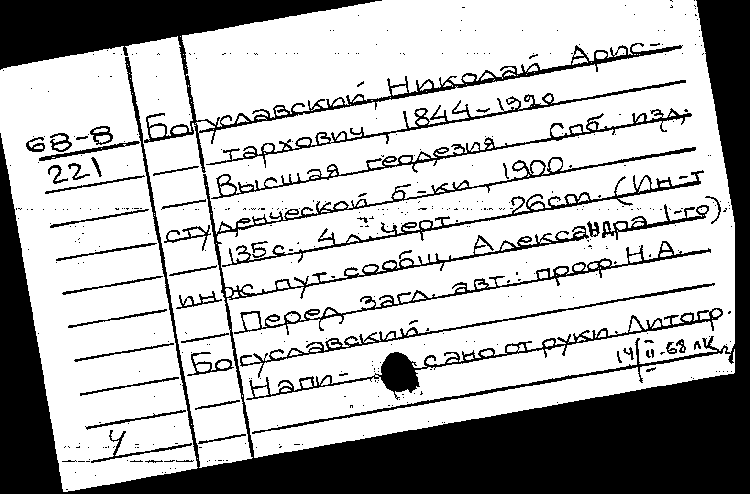 68-8
221
Богуславский, Николай Арис-
тархович, 1844-1920
Высшая геодезия. Спб., изд.
студенческой б-ки, 1900.
135с., 4 л. черт. 26см. (Ин-т
инж. пут. сообщ. Александра I-го).
Перед загл. авт.: проф. Н.А.
Богуславский.
Напи- сано от руки. Литогр.
14/II-68 лк
У